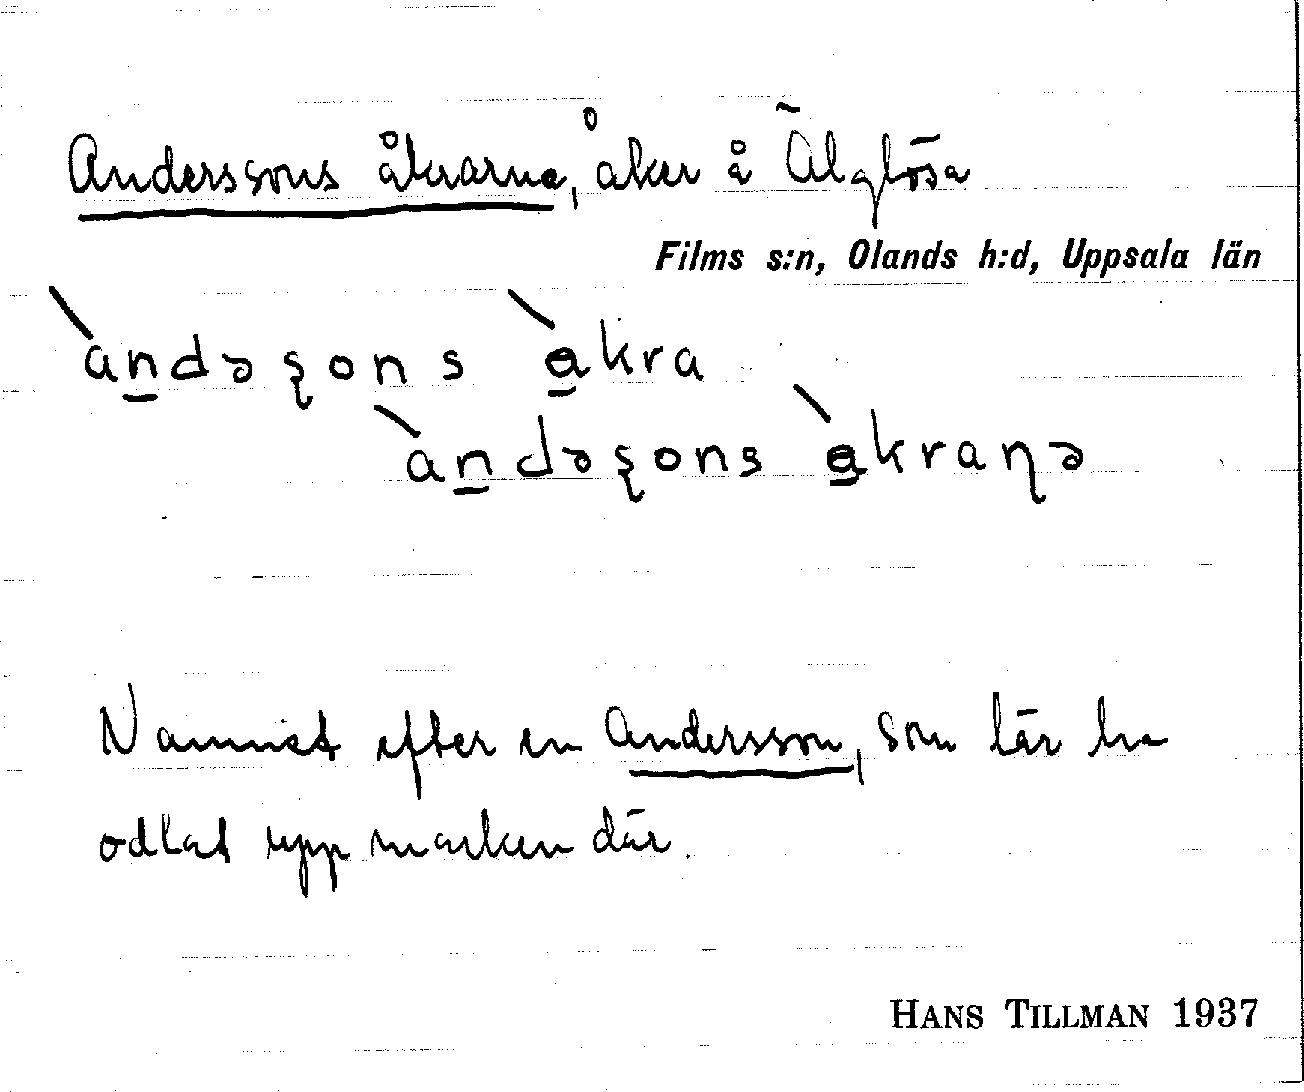 Anderssons åkrarna, åker å Älglösa
Films s:n, Olands h:d, Uppsala län
àn̲dəʂons àkra
àn̲dəʂons àkraɳə
Namnet efter en Andersson, som lär ha
odlat upp marken där.
HANS TILLMAN 1937